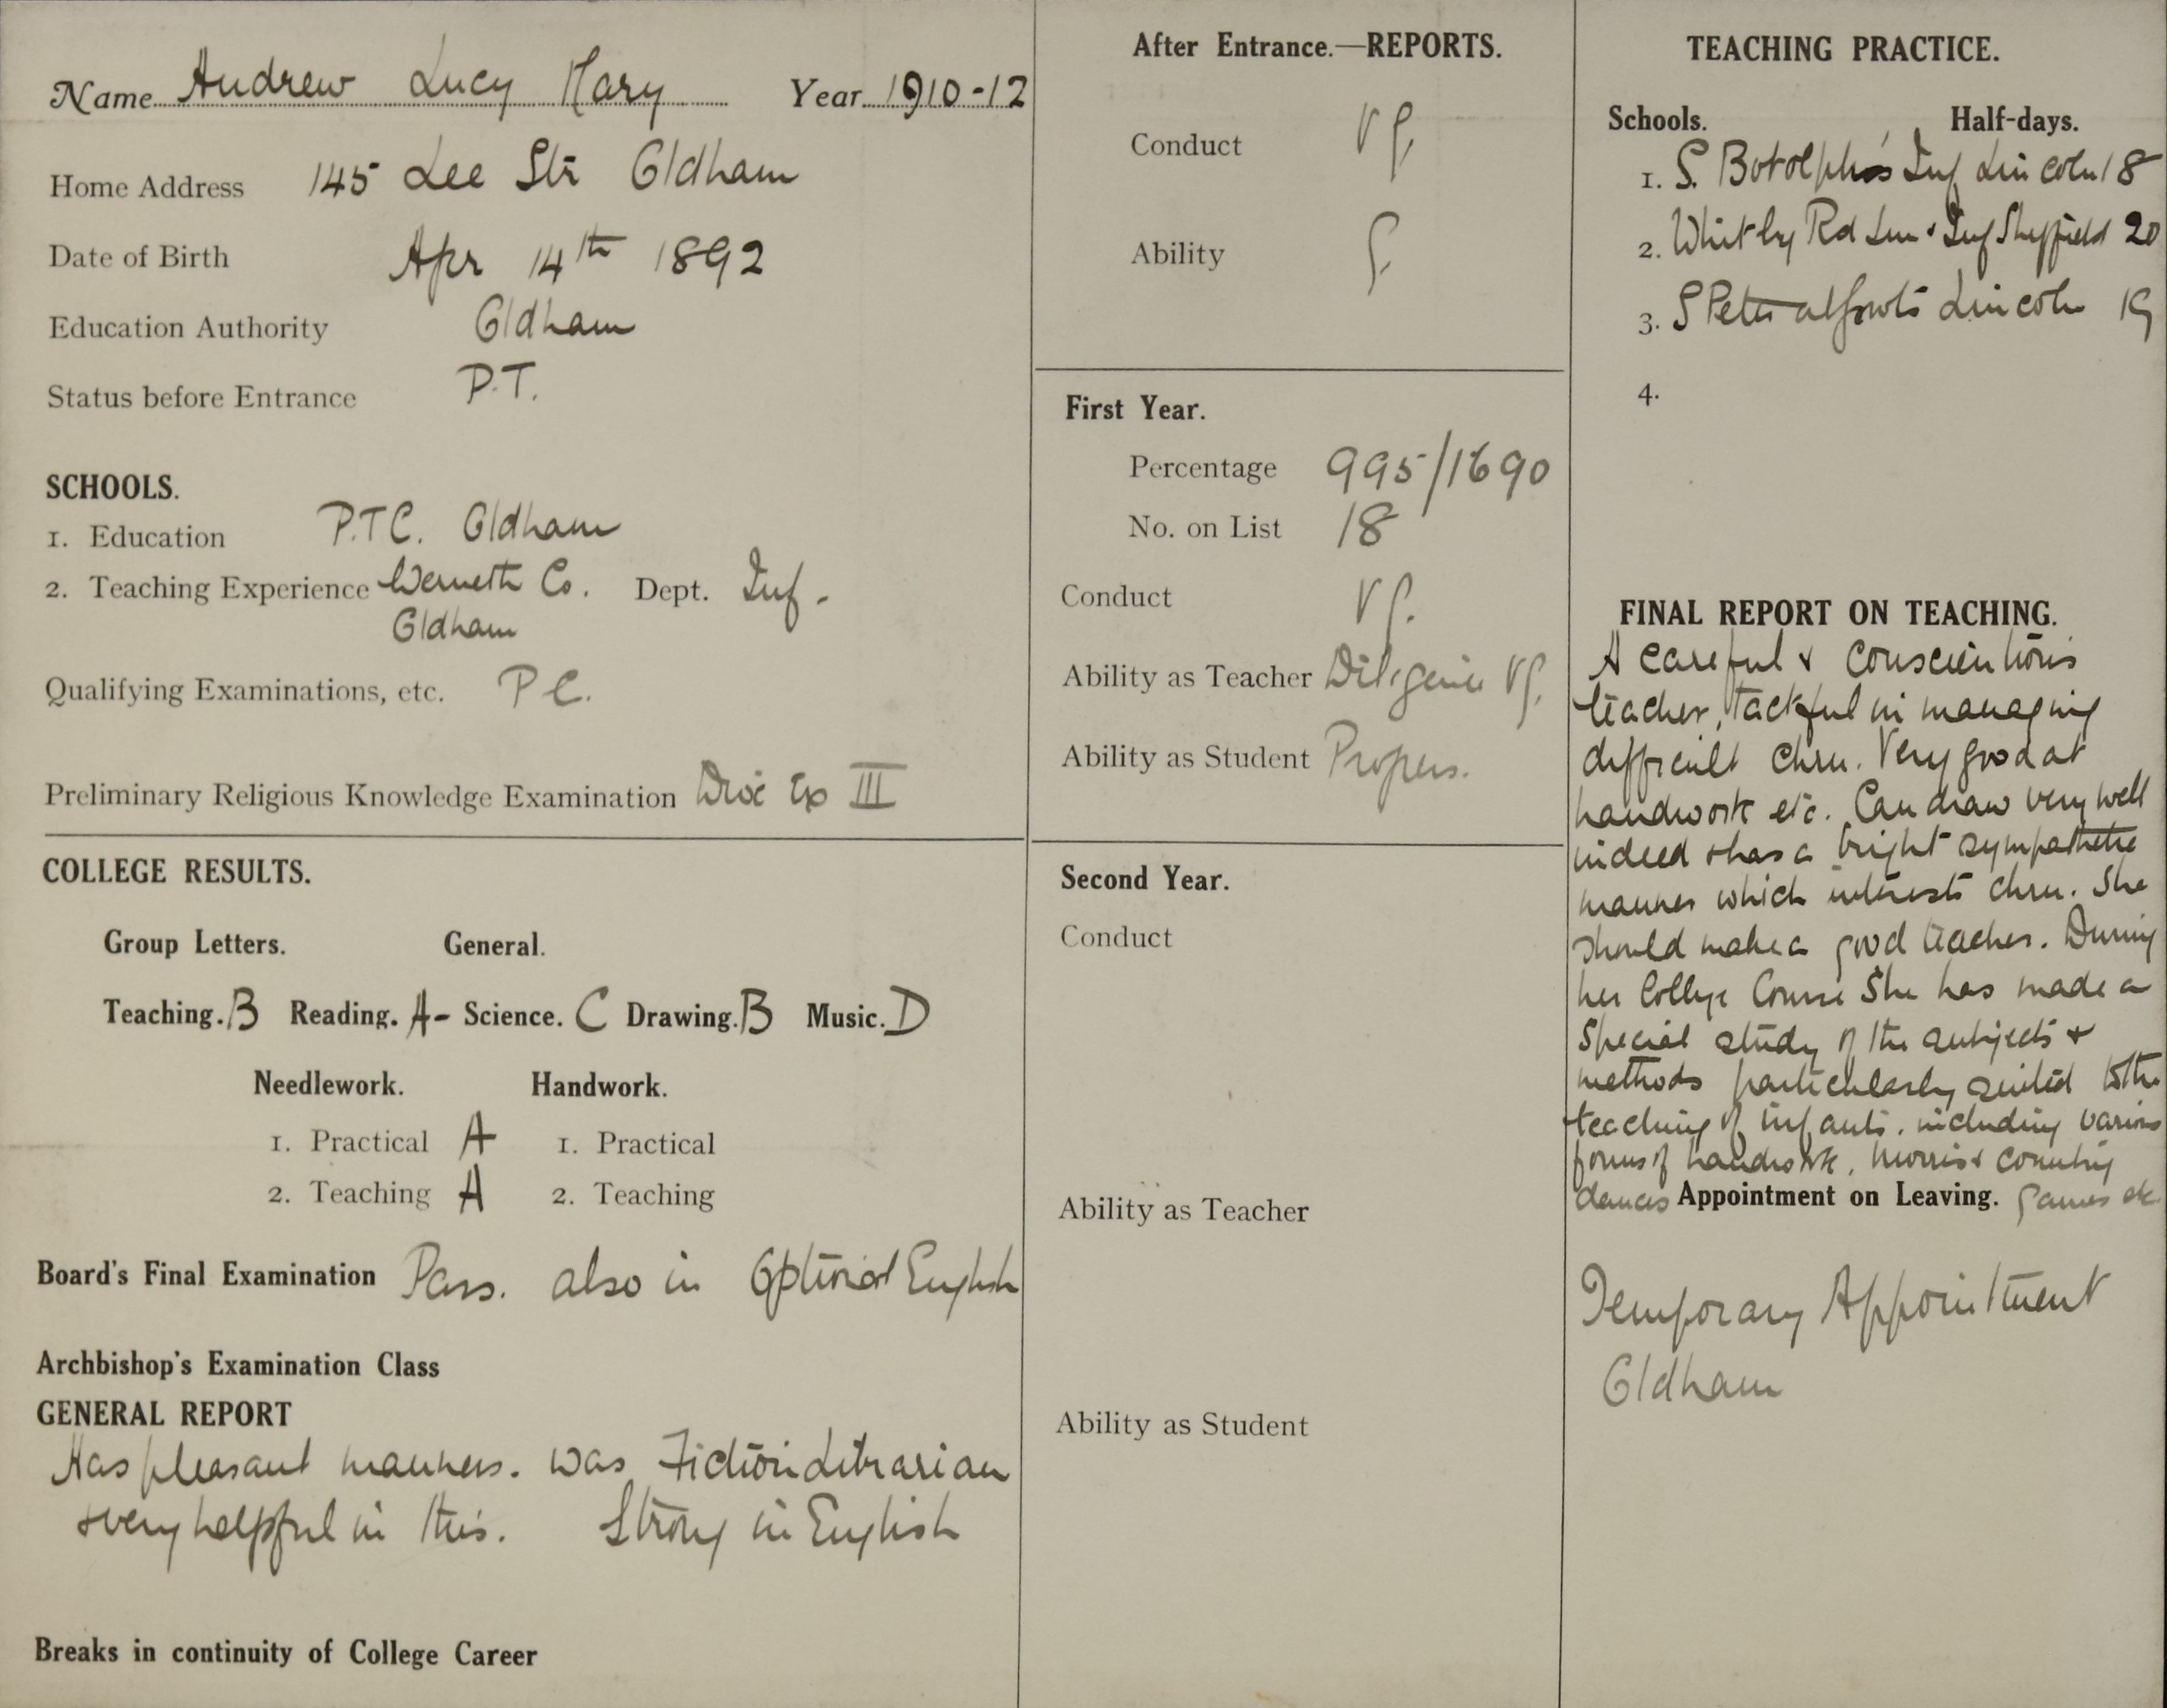 Name Andrew Lucy Mary Year 1910-12
Home Address 145 Lee Str Oldham
Date of Birth Apr 14th 1892
Education Authority Oldham
Status before Entrance P.T.
SCHOOLS.
1. Education P.T.C. Oldham
2. Teaching Experience Werneth Co. Dept. Inf.
Oldham
Qualifying Examinations, etc. P.C.
Preliminary Religious Knowledge Examination Dioc Ex III
COLLEGE RESULTS.
Group Letters. General.
Teaching. B Reading. A- Science. C Drawing. B Music. D
Needlework. Handwork.
1. Practical A 1. Practical
2. Teaching A 2. Teaching
Board's Final Examination Pass. also in Optional English
Archbishop's Examination Class
GENERAL REPORT
Has pleasant manners. was Fiction Librarian
& very helpful in this. Strong in English
Breaks in continuity of College Career
After Entrance.—REPORTS.
Conduct Vg.
Ability g.
First Year.
Percentage 995/1690
No. on List 18
Conduct Vg.
Ability as Teacher Diligence Vg.
Ability as Student Progress.
Second Year.
Conduct
Ability as Teacher
Ability as Student
TEACHING PRACTICE.
Schools. Half-days.
1. S. Botolph's Inf Lincoln 18
2. Whitby Rd Jun & Inf Sheffield 20
3. S Peter at Gowts Lincoln 19
4.
FINAL REPORT ON TEACHING.
A careful & conscientious
teacher, tactful in managing
difficult chrn. Very good at
handwork etc. Can draw very well
indeed & has a bright sympathetic
manner which interests chrn. She
should make a good teacher. During
her College Course She has made a
special study of the subjects &
methods particularly suited to the
teaching of infants, including various
forms of handwork, Morris & country
dances games etc.
Appointment on Leaving.
Temporary Appointment
Oldham